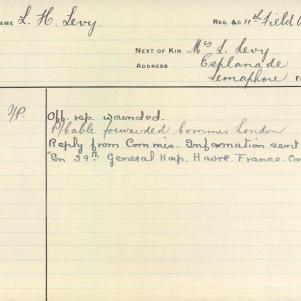 NAME L. H. Levy. REG. &C 11th Field
NEXT OF KIN Mrs L. Levy.
ADDRESS Esplanade
Semaphore
Off. rep. wounded.
P/Cable forwarded Commis London.
Reply from Commis. Information sent
39th General Hosp. Havre. France.